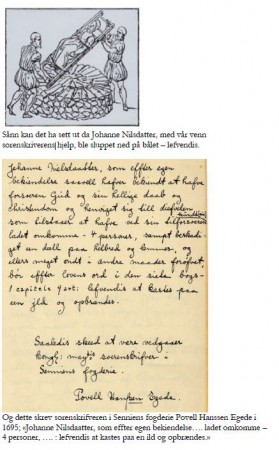 Sånn kan det ha sett ut da Johanne Nilsdatter, med vår venn
sorenskriverens hjelp, ble sluppet ned på bålet – lefvendis.
Johanne Nielsdaatter, som effter egen
bekiendelse saavell hafver bekiendt at hafve
forsoren Gud og sin hellige daab og
christendom og henviget sig till dieflelen
som tilstaar at hafve ved sin
ladet omkomme - 4 personer, sampt
get en dall paa helbred og ømmos, og
ellers meget ondt i andre maader forøfvet,
bør effter lovens ord i den siste bogs
1 capitele 9 art: lefvendis at kastes paa
en jld og opbrændes.
Saaledis skeed at vere vedgaaer
kongl: mayts soerenskrifver i
Senniens fogderie.
Povell Hanssen Egede.
Og dette skrev sorenskrifveren i Senniens fogderie Povell Hanssen Egede i
1695; «Johanne Nilsdaatter, som effter egen bekiendelse.... ladet omkomme –
4 personer, .... : lefvendis at kastes paa en ild og opbrændes.»